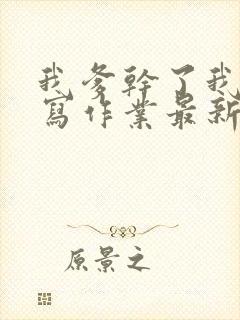 我爹幹了我
寫作業最新
原景之